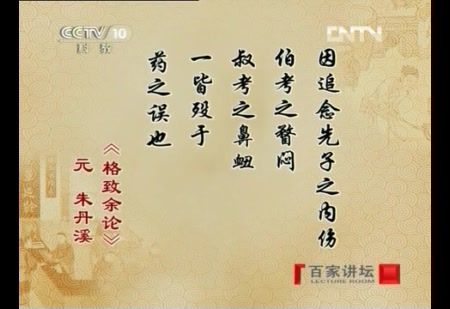 CCTV 10
科教
CNTV
因追念先子之内伤
伯考之瞀闷
叔考之鼻衄
一皆殁于
药之误也
《格致余论》
元 朱丹溪
百家讲坛
LECTURE ROOM